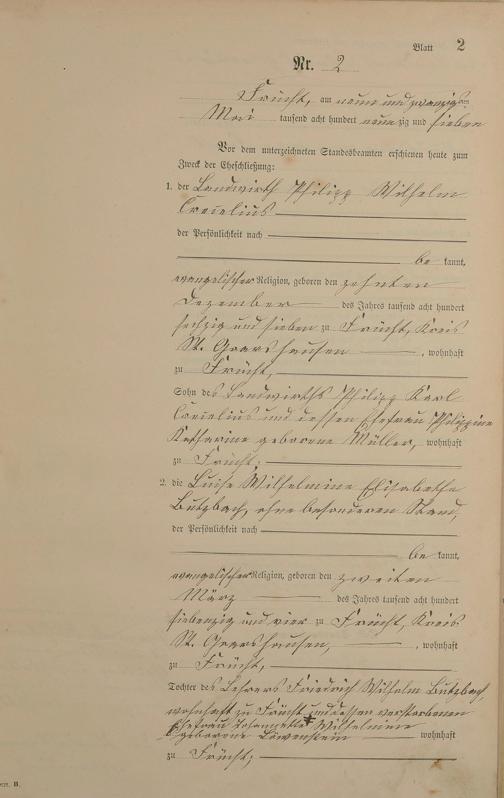 Blatt 2
Nr. 2
Frücht, am neun und zwanzigsten
Mai tausend acht hundert neunzig und sieben
Vor dem unterzeichneten Standesbeamten erschienen heute zum
Zweck der Eheschließung:
1. der Landwirth Philipp Wilhelm
Cornelius
der Persönlichkeit nach
be kannt,
evangelischer Religion, geboren den zehnten
Dezember des Jahres tausend acht hundert
sechzig und sieben zu Frücht, Kreis
St. Goarshausen, wohnhaft
zu Frücht,
Sohn des Landwirths Philipp Karl
Cornelius und dessen Ehefrau Philippine
Katharine geborene Müller, wohnhaft
zu Frücht;
2. die Luise Wilhelmine Elisabethe
Butzbach, ohne besonderen Stand,
der Persönlichkeit nach
be kannt,
evangelischer Religion, geboren den zweiten
März des Jahres tausend acht hundert
siebenzig und vier zu Frücht, Kreis
St. Goarshausen, wohnhaft
zu Frücht,
Tochter des Lehrers Friedrich Wilhelm Butzbach,
wohnhaft zu Frücht und dessen verstorbenen
Ehefrau Wilhelmine
geborene Löwenstein wohnhaft
zu Frücht;
B.